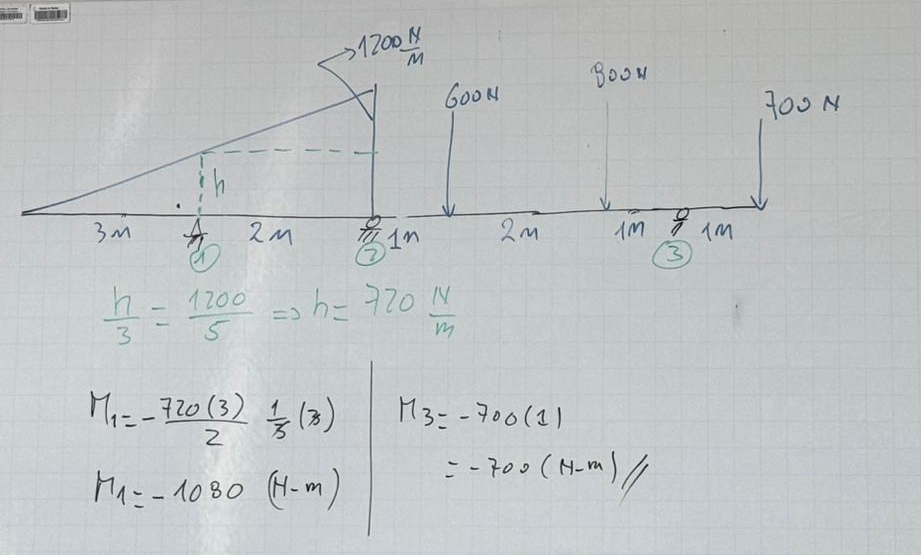 1200 N/M
600N
800N
700 N
h
3m 2m 1m 2m 1m 1m
1 2 3
h/3 = 1200/5 => h = 720 N/m
M1 = - 720(3)/2 1/3 (3)
M1 = - 1080 (N-m)
M3 = - 700(1)
= - 700 (N-m) //